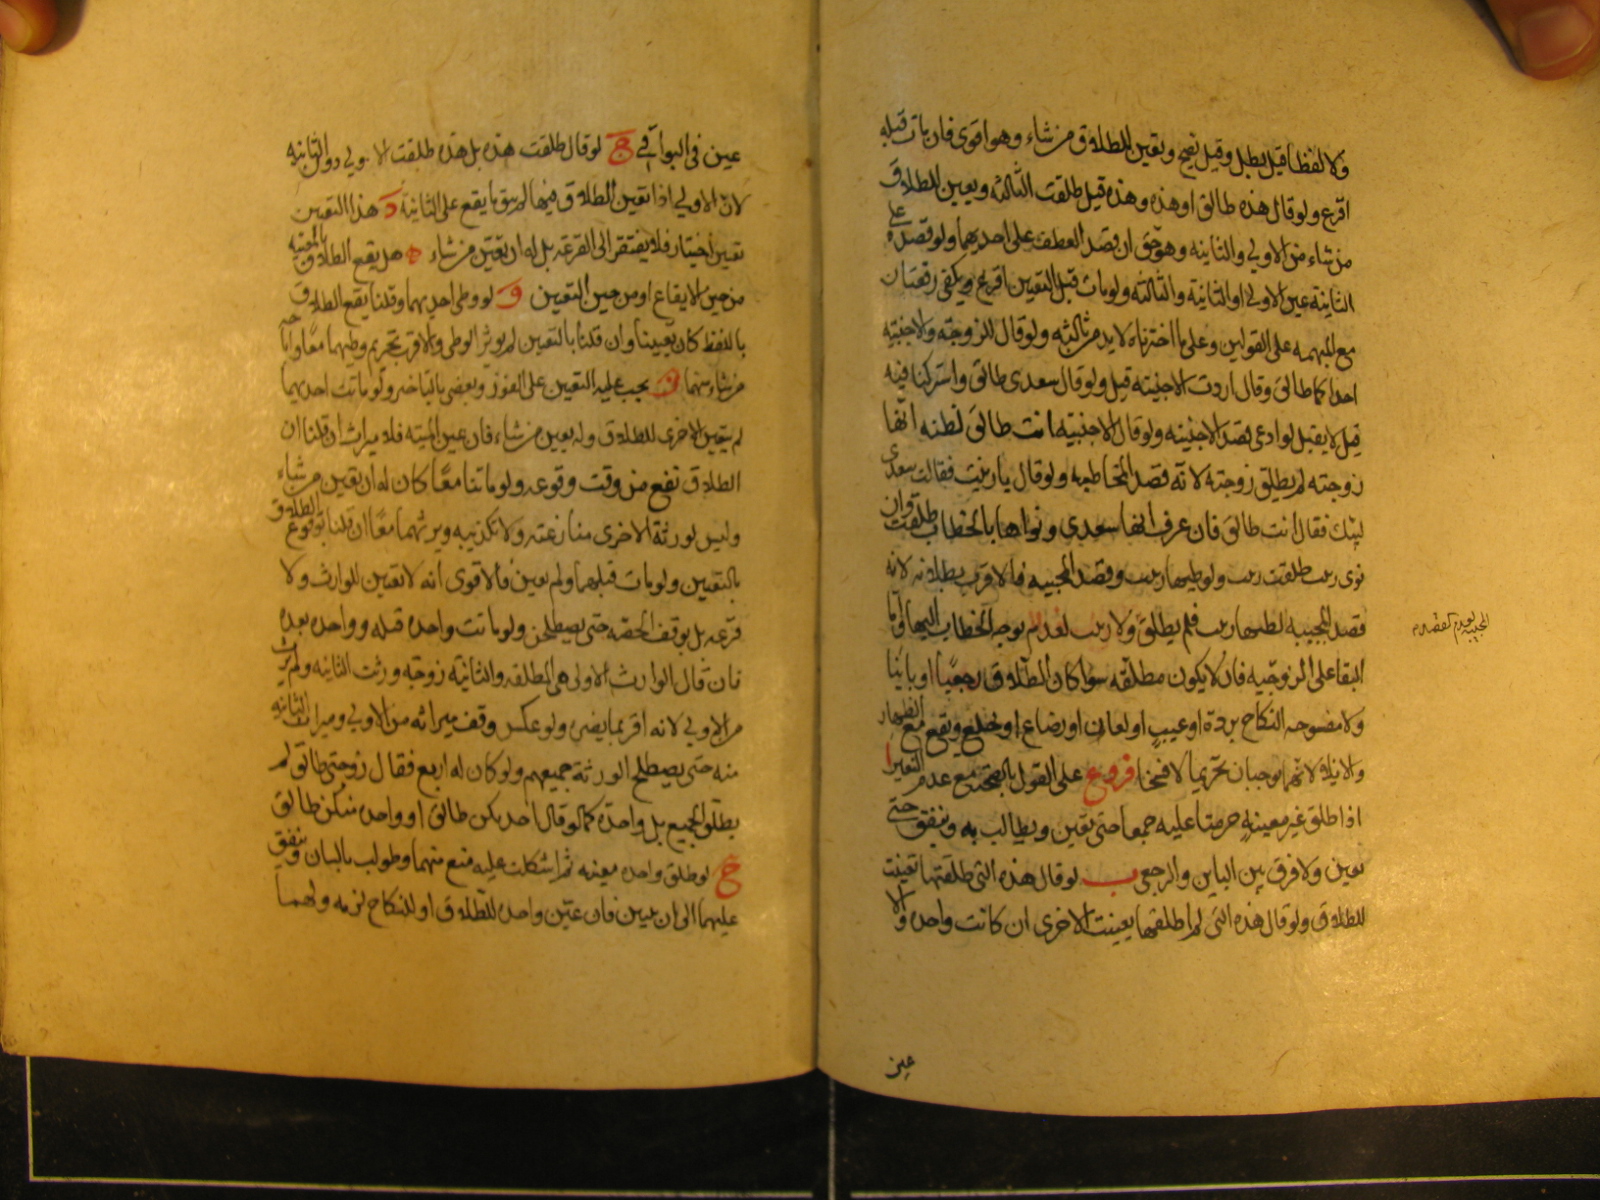 ولا لفظا قيل يبطل وقيل يصح ويعين للطلاق من شاء وهو اقوى فان مات قبله
اقرع ولو قال هذه طالق او هذه وهذه قيل طلقت الثالثه ويعين للطلاق
من شاء من الاولى والثانيه وهو حق ان قصد العطف على احديهما ولو قصده على
الثانية عين الاولى او الثانية والثالثه ولو مات قبل التعيين اقرع ويكفى رقعتان
مع المبهمه على القولين وعلى ما اخترناه لا بد من ثالثه ولو قال للزوجته والاجنبيه
احداكما طالق وقال اردت الاجنبيه قبل ولو قال سعدى طالق واشتركتا فيه
قيل لا يقبل لو ادعى قصد الاجنبيه ولو قال لاجنبيه انت طالق لظنه انها
زوجته لم يطلق زوجته لانه قصد المخاطبه ولو قال يا زينب فقالت سعدى
لبيك فقال انت طالق فان عرف انها سعدى ونواها بالخطاب طلقت وان
نوى زينب طلقت زينب ولو ظنها زينب وقصد المجيبه فالاقرب بطلانه لانه
قصد المجيبه لظنها زينب فلم يطلق ولا زينب لعدم توجه الخطاب اليها واما
المجيبه لعدم القصد
البقا على الزوجيه فان لا يكون مطلقه سوا كان الطلاق رجعيا او باينا
ولا مفسوخه النكاح برده او عيب او لعان او رضاع او بخلع ويقع مع الظهار
والايلا لانهما يوجبان تحريما لا فسخا فروع على القول بالصحة مع عدم التعيين ا
اذا طلق غير معينه حرمتا عليه جميعا حتى يعين ويطالب به وينفق حتى
يعين ولا فرق بين الباين والرجعى ب لو قال هذه التى طلقتها تعينت
للطلاق ولو قال هذه التى لم اطلقها تعينت الاخرى ان كانت واحده والا
عين
عين فى البواقى ج لو قال طلقت هذه بل هذه طلقت الاولى دون الثانيه
لان الاولى اذا تعين الطلاق فيها لم يبق ما يقع على الثانية د هذا التعيين
تعيين اختيار فلا يفتقر الى القرعه بل له ان يعين من شاء ه هل يقع الطلاق بالمعينه
من حين الايقاع او من حين التعيين و لو وطى احديهما وقلنا يقع الطلاق
باللفظ كان تعيينا وان قلنا بالتعيين لم يوثر الوطى والاقرب تحريم وطيهما معا واباحه
من شاء منهما ز يجب عليه التعيين على الفور ويعصى بالتاخير ولو ماتت احديهما
لم يتعين الاخرى للطلاق وله يعين من شاء فان عين الميته فلا ميراث ان قلنا ان
الطلاق يقع من وقت وقوعه ولو ماتتا معا كان له ان يعين من شاء
وليس لورثة الاخرى منازعته ولا تكذيبه ويرثهما معا ان قلنا بوقوع الطلاق
بالتعيين ولو مات قبلهما ولم يعين فالاقوى انه لا تعيين للوارث ولا
قرعه بل يوقف الحصه حتى يصطلحن ولو ماتت واحده قبله وواحده بعده
فان قال الوارث الاولى هى المطلقه والثانية زوجه ورثت الثانيه ولم يرث
من الاولى لانه اقر بما يضره ولو عكس وقف ميراثه من الاولى وميراث الثانيه
منه حتى يصطلح الورثة جميعهم ولو كان له اربع فقال زوجتى طالق لم
يطلق الجميع بل واحدة كما لو قال احديكن طالق او واحده منكن طالق
ح لو طلق واحده معينه ثم اشكلت عليه منع منهما وطولب بالبيان وينفق
عليهما الى ان يبين فان عين واحده للطلاق او للنكاح لزمه ولهما